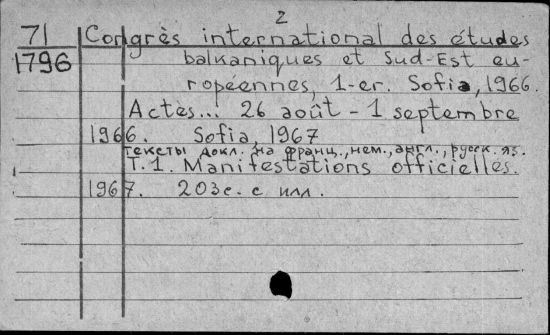 2
71 Congrès international des études
1796 balkaniques et Sud-Est eu-
ropéennes, 1-er. Sofia, 1966.
Actès... 26 août - 1 septembre
1966. Sofia, 1967
Тексты докл. на франц., нем., англ., русск. яз.
T.1. Manifestations officielles.
1967. 203 с. с илл.